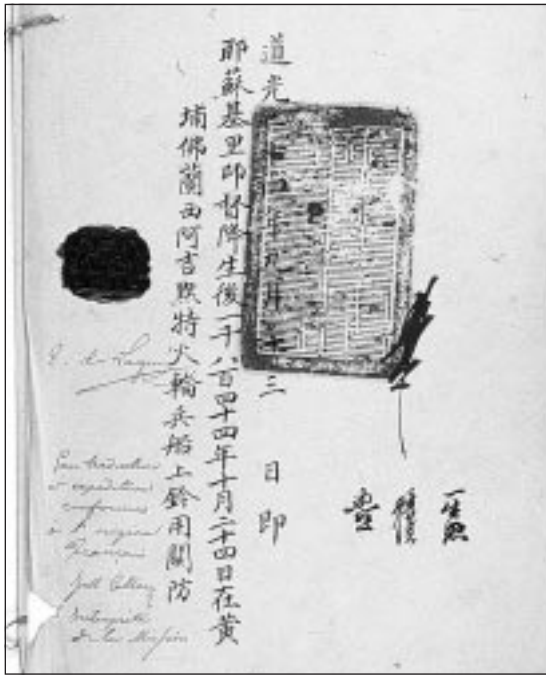 道光二十四年九月十三 日即
耶蘇基里師督降生後一千八百四十四年十月二十四日在黃
埔佛蘭西阿吉黙特火輪兵船上鈐用關防
de Lagrené
Pour traduction
et expédition
conformes
à l'original
Français
Callery
Interprète
de la Mission